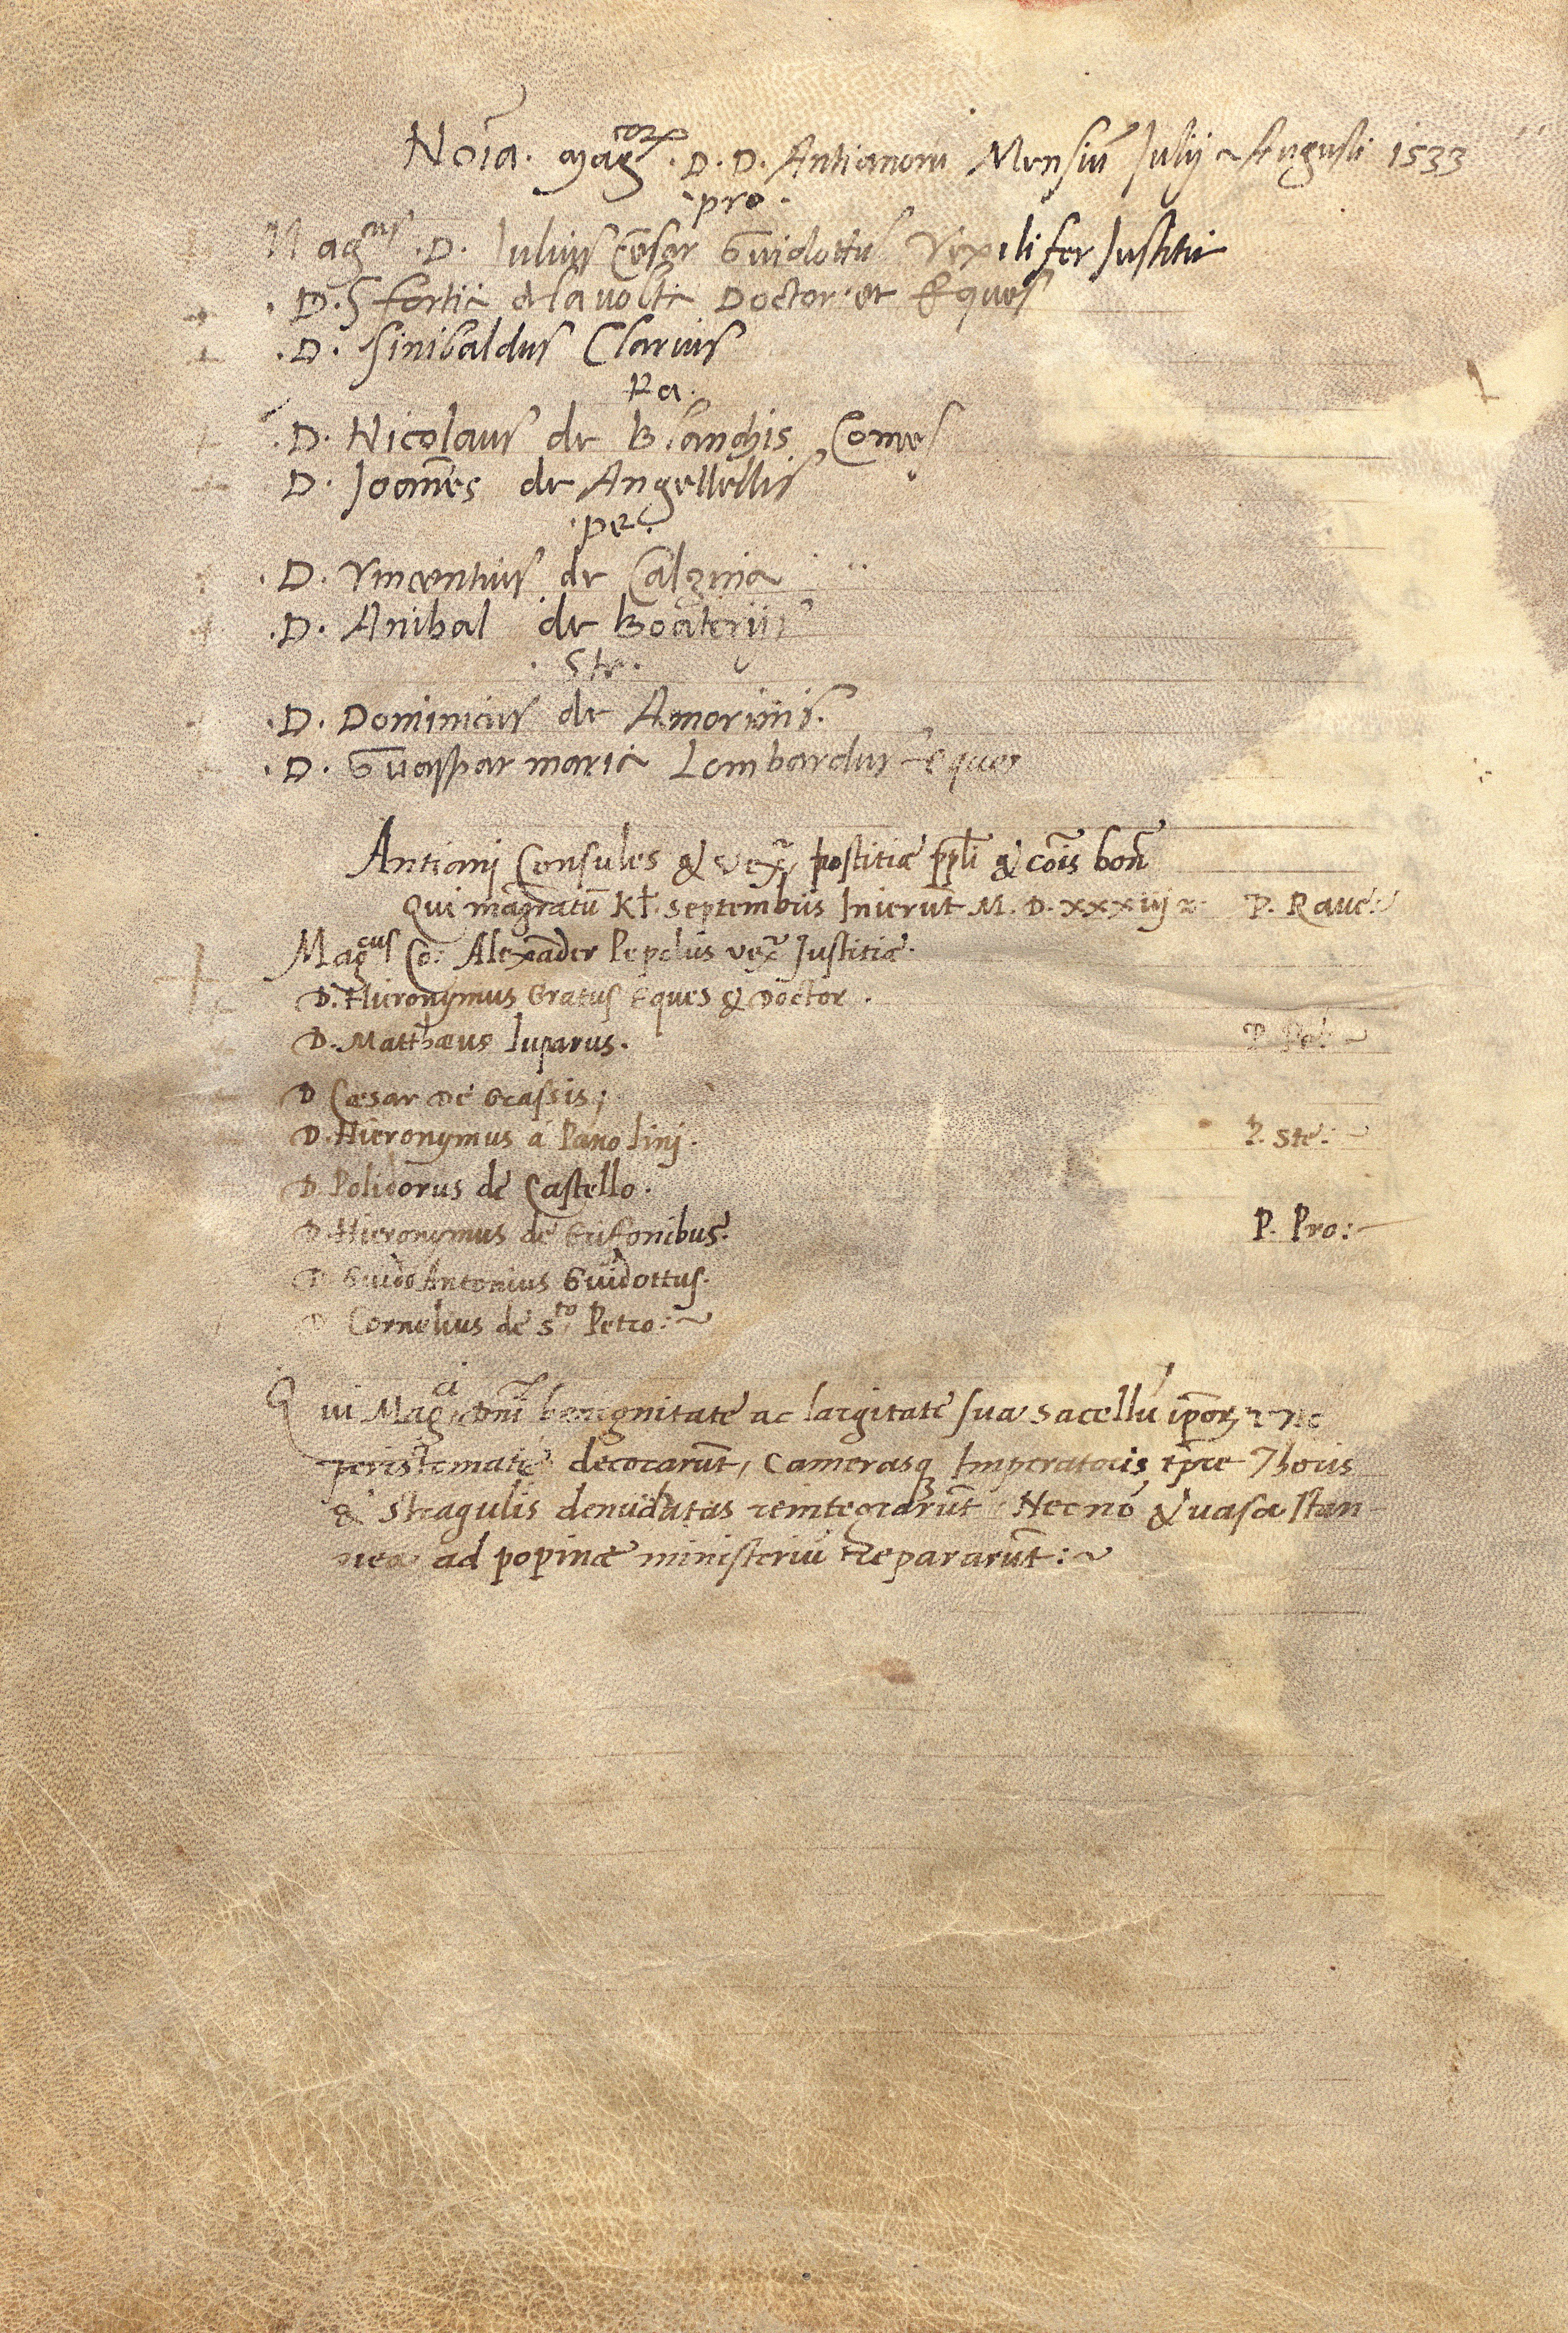 Nõia. mag.corꝝ D. D. Antianorū Mensiū Julij & Augusti 1533
.pro.
Mag.cus .D. Julius Cēsar Guidottus Vexilifer Justitie
.D. Sfortia dela volta Doctor et Eques
.D. Sinibaldus Clarius
Ra.
.D. Nicolaus de Blanchis Comes
D. Joañes de Angellellis
.pe.
.D. Vincentius de Calzina
.D. Anibal de Boateriis
. Ste .
.D. Dominicus de Amorinis.
.D. Guaspar maria Lombardus eques
Antiani Consules & vex. Justitiæ ppli & cõis boñ
Qui magratū Kl. Septembris Inierūt M. D. xxxiij P. Rave:
Mag.cus Co: Alexāder Pepolus vex. Justitiæ.
D. Hieronymus Gratus Eques & Doctor .
D. Matthæus luparus. P. Pet:
D Cæsar de Grassis;
D. Hieronymus á Pano linj. P. Ste:
D. Polidorus de Castello.
D. Hieronymus de Grifonibus. P. Pro:
D Guido Antonius Guidottus.
D Cornelius de S.to Petro:
Qui Mag.ci Dñi benignitate ac largitate sua sacellū ipsoꝝ
peristemate decorarūt, camerasq Imperatoris tpre Thoris
& Stragulis denudatas reintegrarūt. Necnō & vasa stan-
nea ad popinæ ministeriū Repararūt: